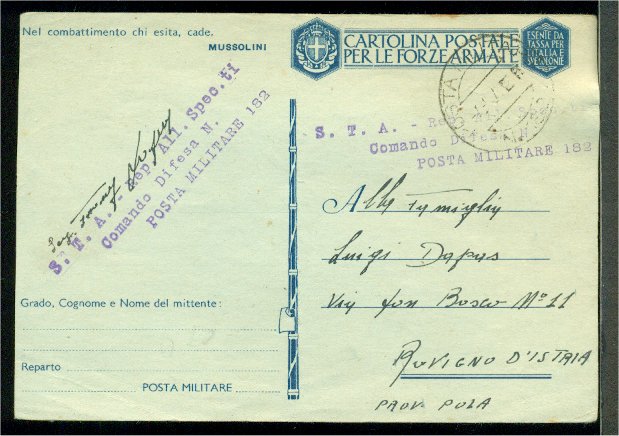 Nel combattimento chi esita, cade.
MUSSOLINI
CARTOLINA POSTALE
PER LE FORZE ARMATE
ESENTE DA
TASSA PER
L'ITALIA E
S. T. A. - Rep. All. Spec.ti
Comando Difesa N.
POSTA MILITARE 182
S. T. A. - Rep
Comando Difesa N.
POSTA MILITARE 182
POSTA
Alla Famiglia
Luigi Dapas
Via Don Bosco Nº 11
ROVIGNO D'ISTRIA
PROV. POLA
Grado, Cognome e Nome del mittente:
Reparto
POSTA MILITARE